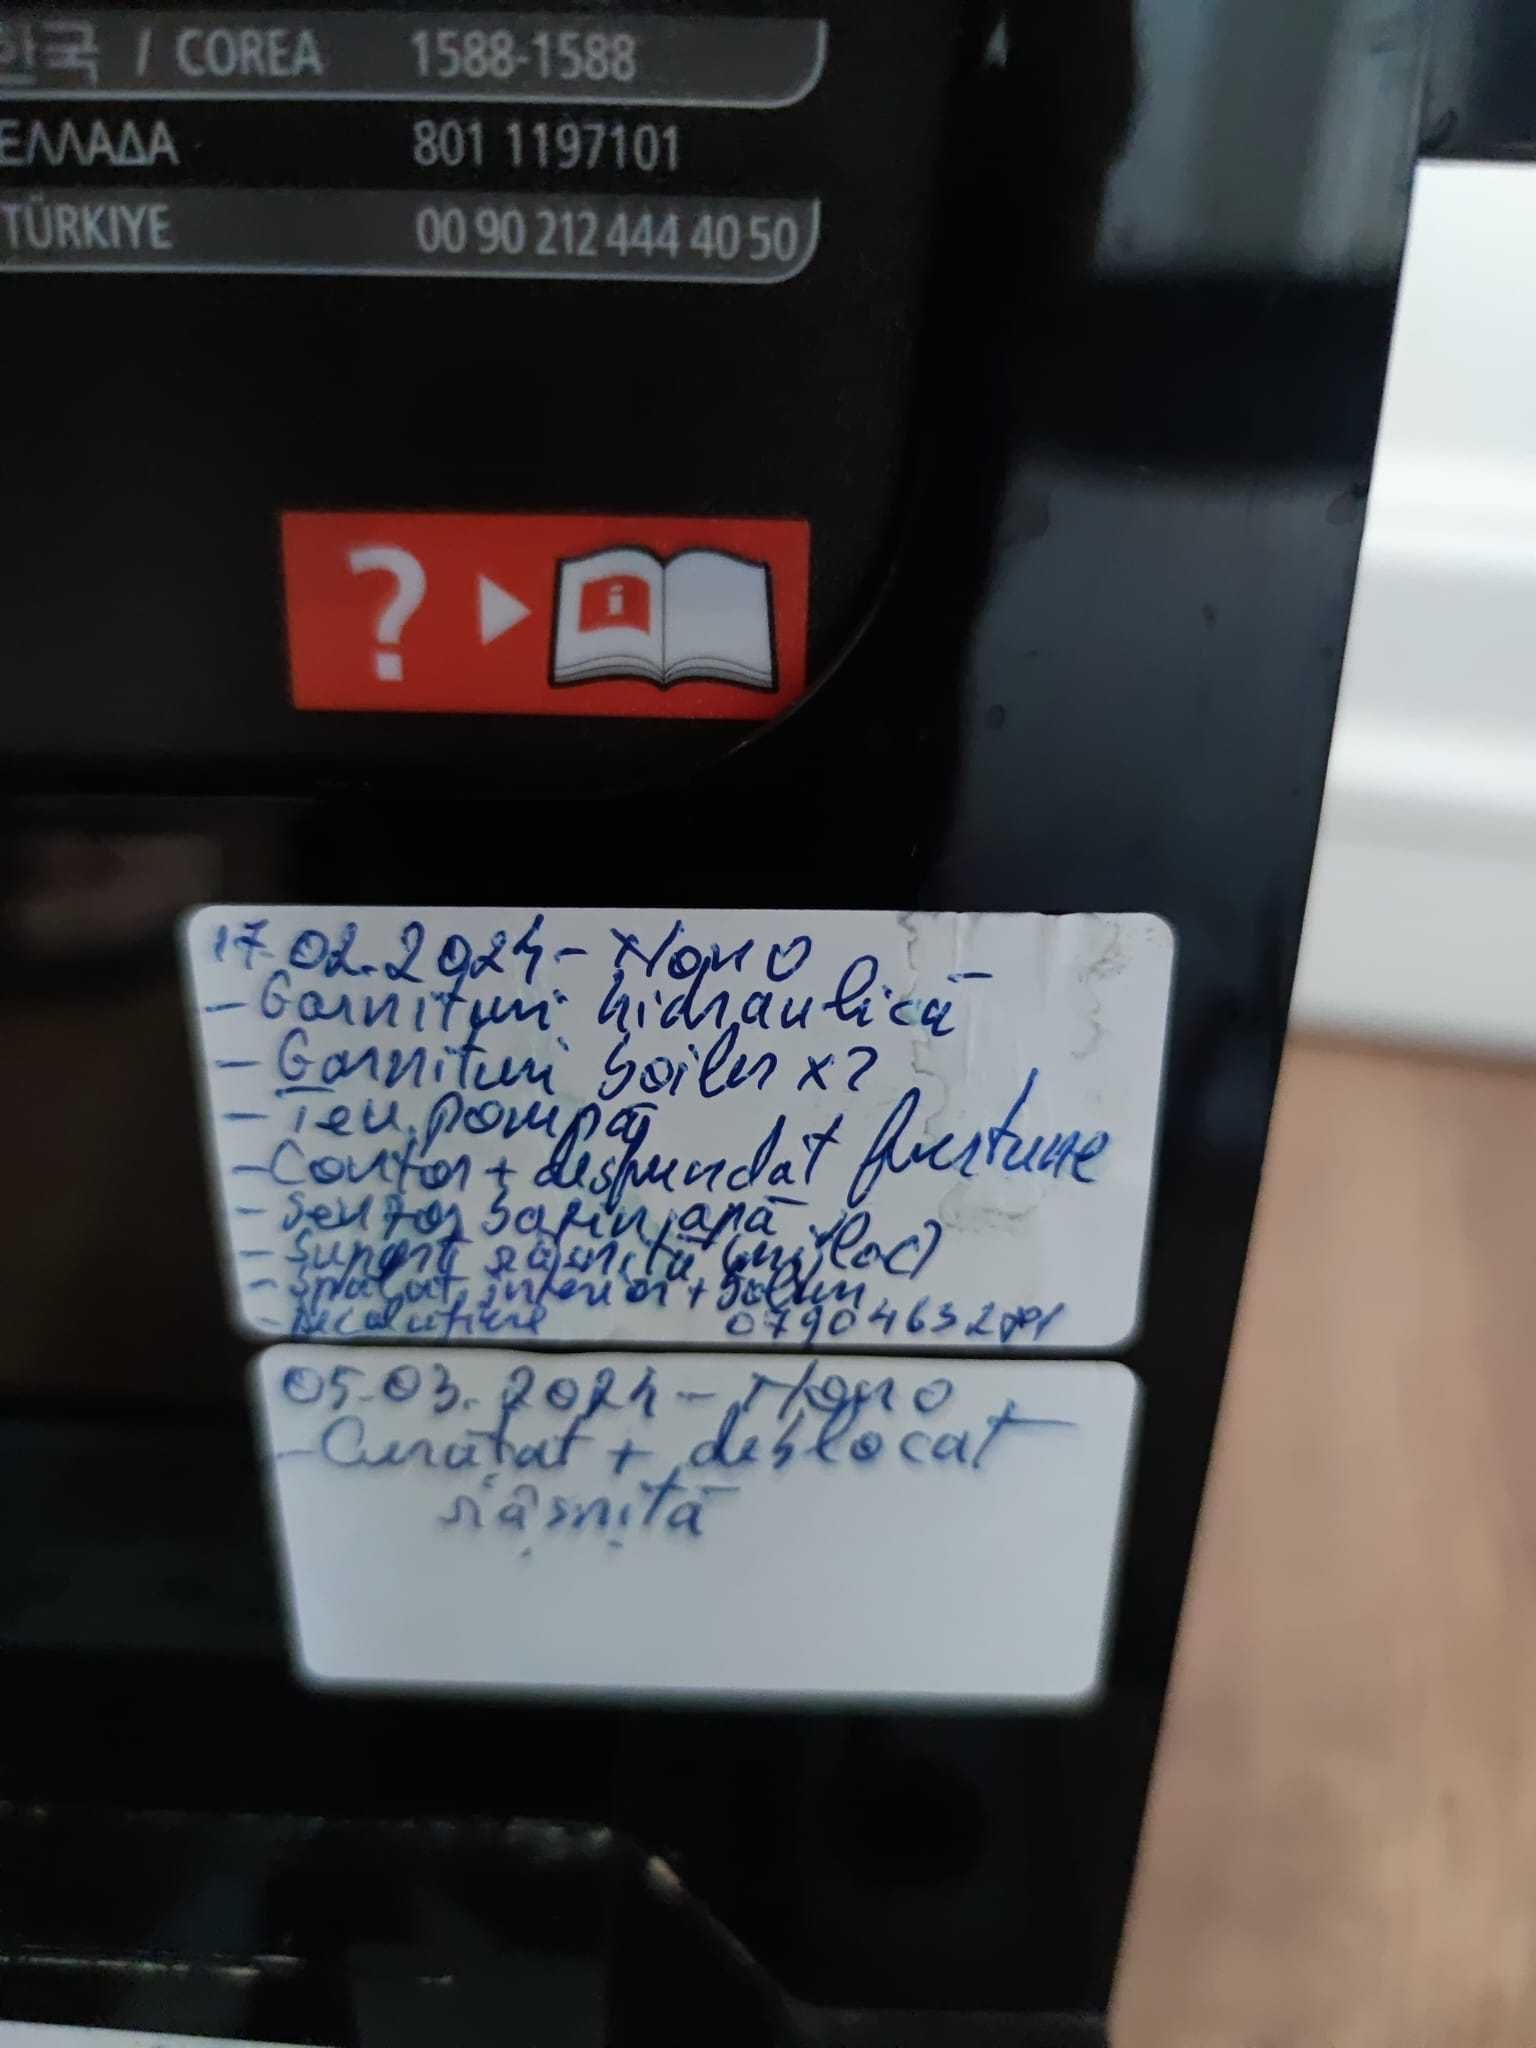 한국 / COREA 1588-1588
ΕΛΛΑΔΑ 801 1197101
TÜRKIYE 00 90 212 444 40 50
?
i
17.02.2024 - Horo
- Garnituri hidraulică
- Garnituri boiler x2
- Teu pompă
- Contor + desfundat furtune
- Senzor bazin apă
- Suport râșniță (mijloc)
- Spălat interior + boiler
- Decalcifiere 0790463
05.03.2024 - Horo
- Curățat + deblocat
râșniță